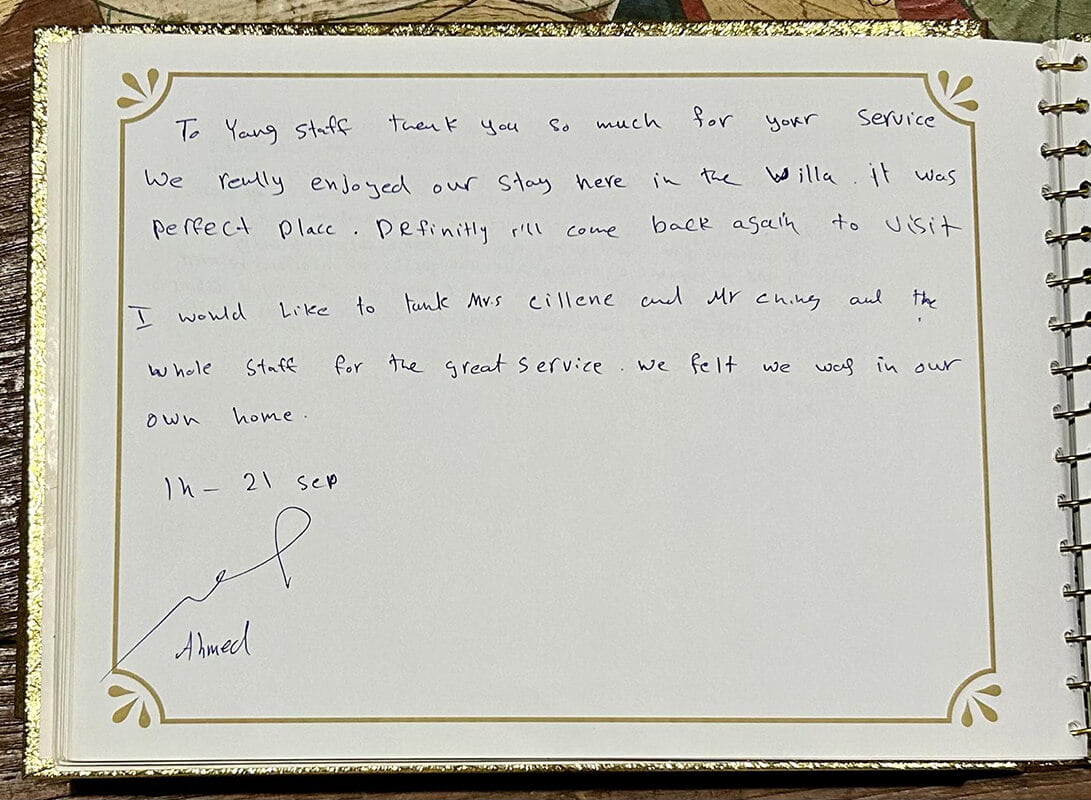 To Yang staff thenk you so much for your service
We really enjoyed our stay here in the Willa. it was
perfect place. Definitly i'll come back again to visit
I would Like to tank Mrs cillene and Mr ching and the
whole staff for the great service. we felt we was in our
own home.
21 sep
Ahmed